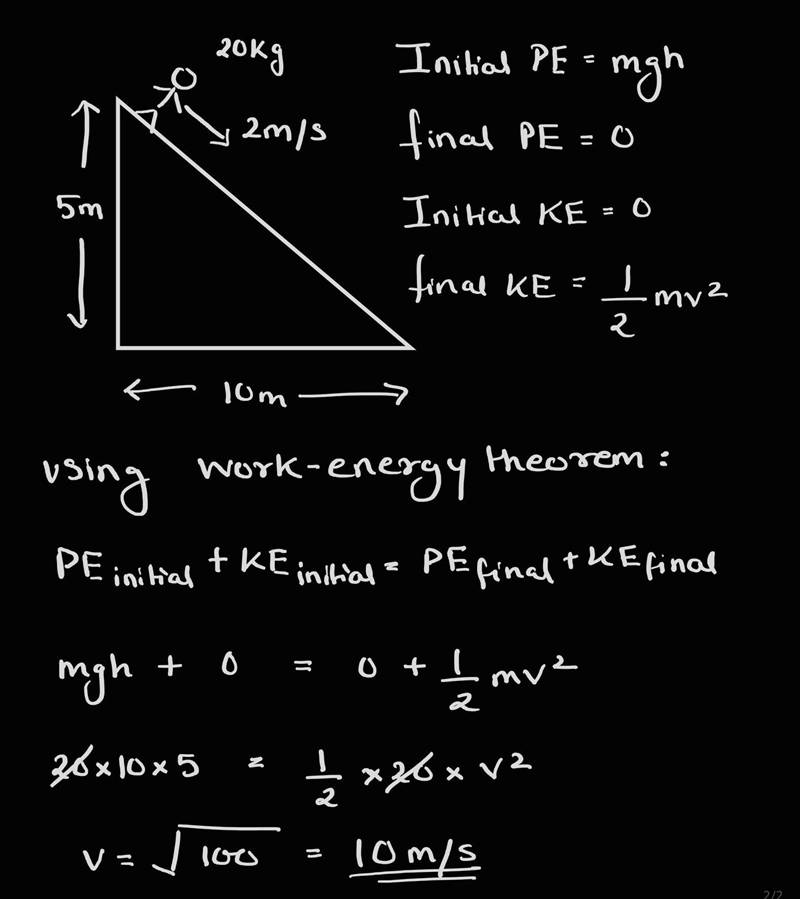 20Kg
2m/s
5m
10m
Initial PE = mgh
final PE = 0
Initial KE = 0
final KE = 1/2 mv²
using work-energy theorem:
PE initial + KE initial = PE final + KE final
mgh + 0 = 0 + 1/2 mv²
20 × 10 × 5 = 1/2 × 20 × v²
v = √100 = 10 m/s
2/2